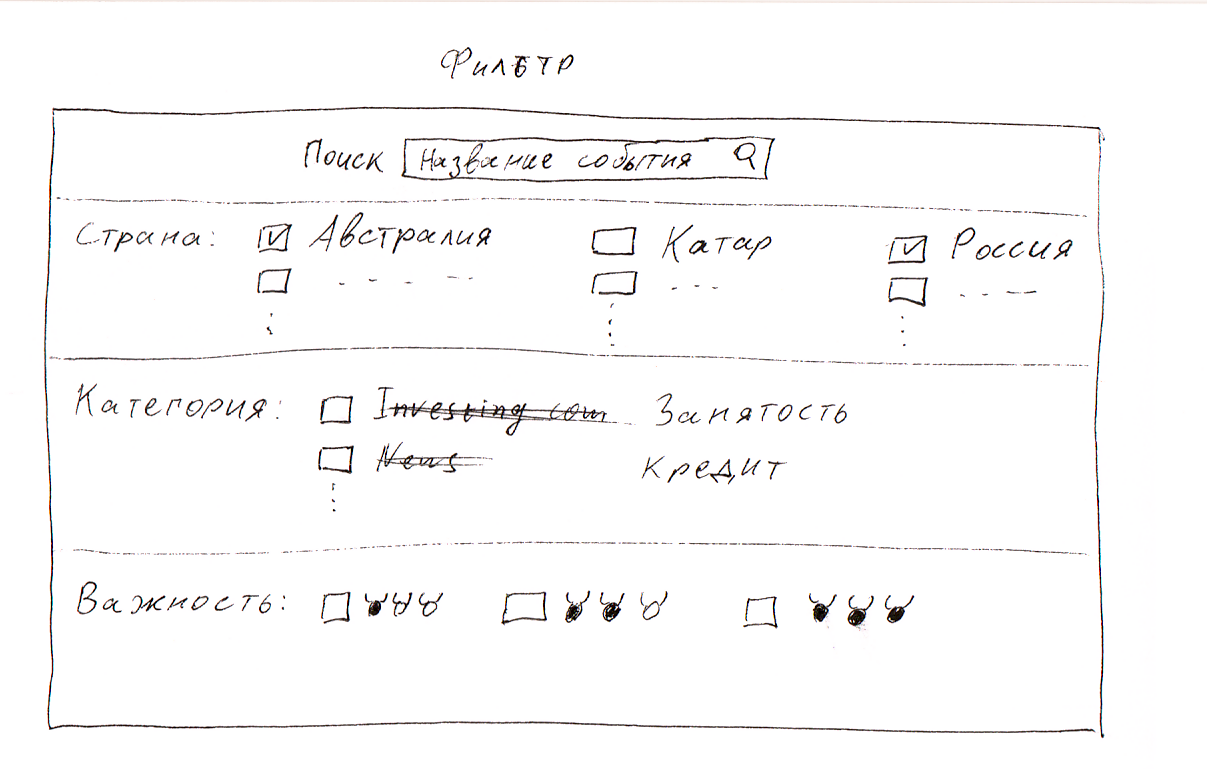 Фильтр
Поиск Название события
Страна: Австралия Катар Россия
Категория: Investing com Занятость
News Кредит
Важность: